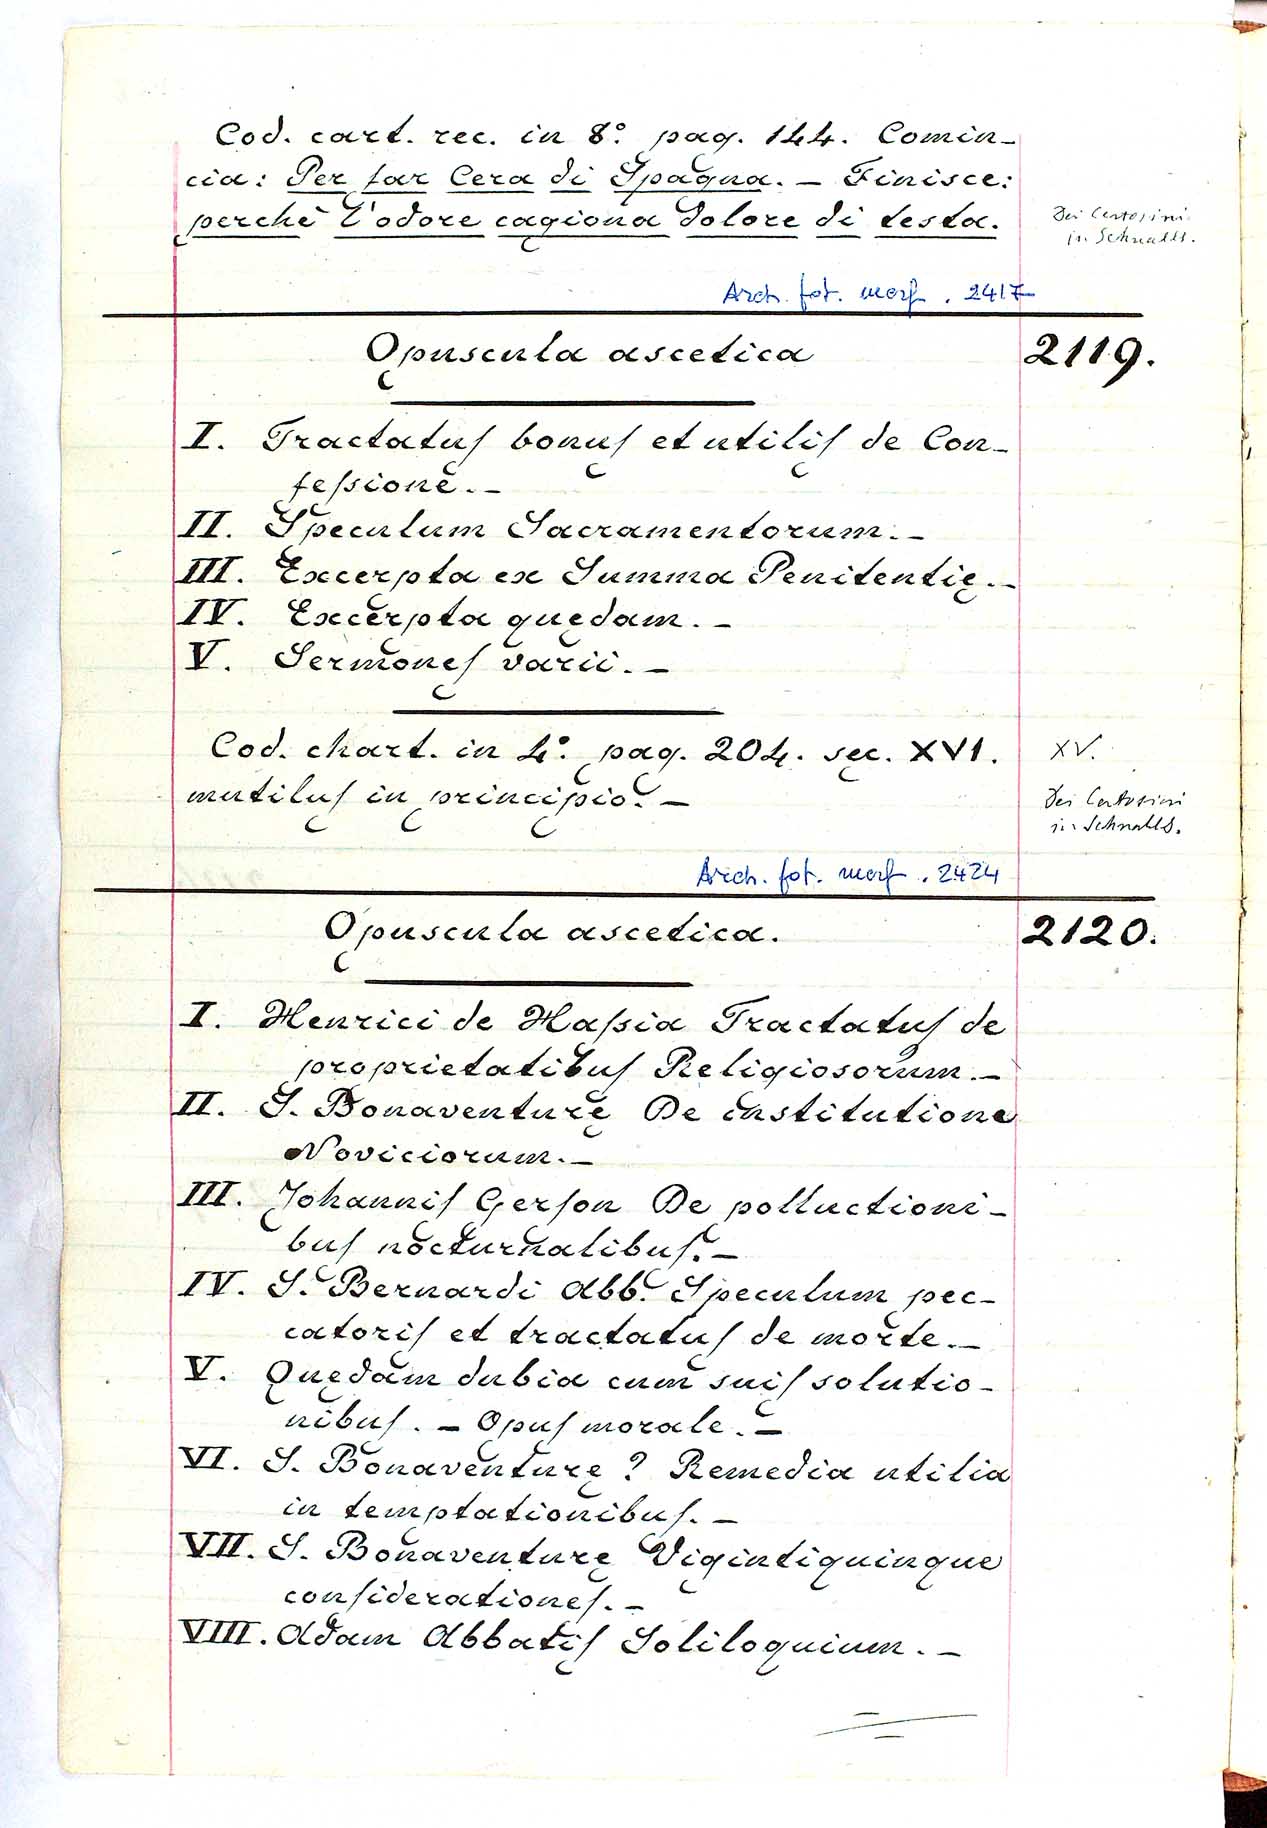 Cod. cart. rec. in 8.° pag. 144. Comin-
cia: Per far Cera di Spagna. — Finisce:
perchè l'odore cagiona dolore di testa.
Dei Certosini
in Schnalls.
Arch. fot. morf. 2417
Opuscula ascetica
2119.
I. Tractatuſ bonuſ et utiliſ de Con-
feſsione. —
II. Speculum Sacramentorum. —
III. Excerpta ex Summa Penitentię. —
IV. Excerpta quędam. —
V. Sermoneſ varii. —
Cod. chart. in 4.° pag. 204. sec. XVI.
XV.
mutiluſ in principio. —
Dei Certosini
in Schnalls.
Arch. fot. morf. 2424
Opuscula ascetica.
2120.
I. Henrici de Haſsia Tractatuſ de
proprietatibuſ Religiosorum. —
II. S. Bonaventurę De institutione
Noviciorum. —
III. Johanniſ Gerſon De polluctioni-
buſ nocturnalibuſ. —
IV. S. Bernardi Abb. Speculum pec-
catoriſ et tractatuſ de morte. —
V. Quędam dubia cum suiſ solutio-
nibuſ. — Opuſ morale. —
VI. S. Bonaventurę? Remedia utilia
in temptationibuſ. —
VII. S. Bonaventurę Vigintiquinque
conſiderationeſ. —
VIII. Adam Abbatiſ Soliloquium. —